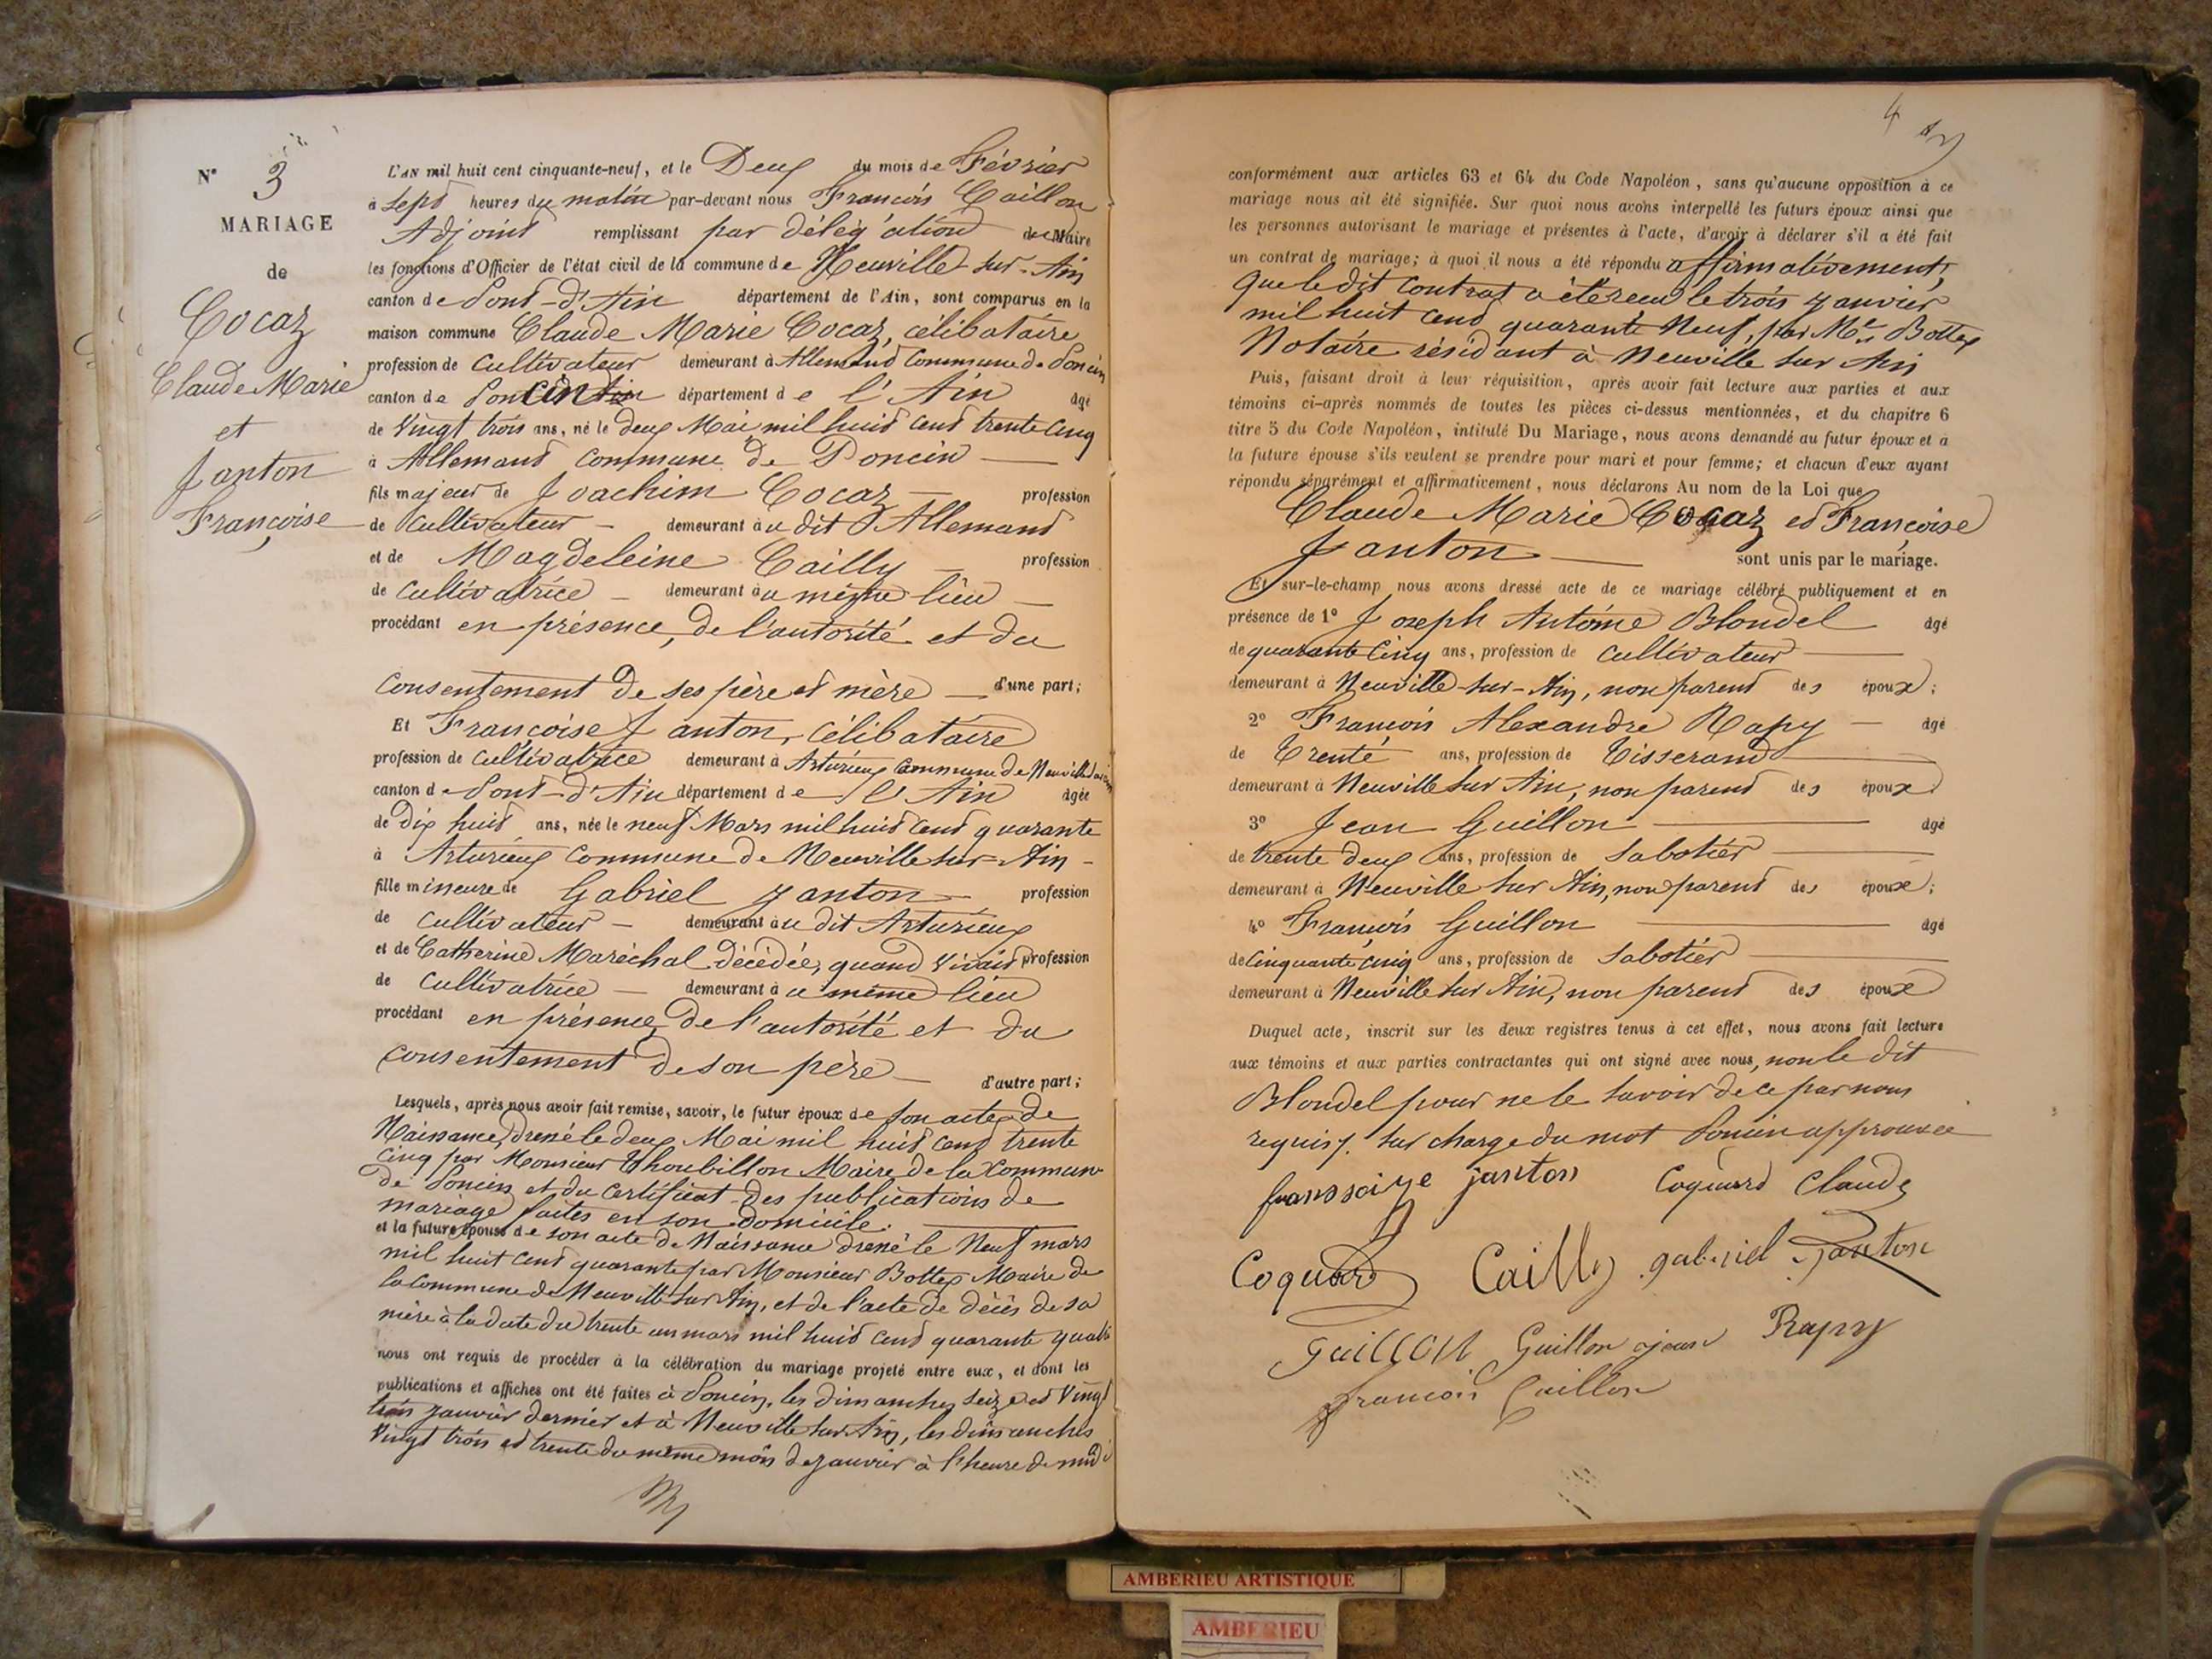 N° 3
MARIAGE
de
Cocaz
Claude Marie
et
Janton
Françoise
L'AN mil huit cent cinquante-neuf, et le Deux du mois de Février
à sept heures du matin par-devant nous François Caillon
Adjoint remplissant par délégation du Maire
les fonctions d'Officier de l'état civil de la commune de Neuville sur-Ain
canton de Pont-d'Ain département de l'Ain, sont comparus en la
maison commune Claude Marie Cocaz, célibataire
profession de cultivateur demeurant à Allemand commune de Poncin
canton de Poncin département de l'Ain âgé
de Vingt trois ans, né le deux Mai mil huit cent trente cinq
à Allemand commune de Poncin
fils majeur de Joachim Cocaz profession
de cultivateur demeurant au dit Allemand
et de Magdeleine Cailly profession
de cultivatrice demeurant au même lieu
procédant en présence, de l'autorité et du
consentement de ses père et mère d'une part;
Et Françoise Janton, célibataire
profession de cultivatrice demeurant à Arturieux commune de Neuville sur Ain
canton de Pont-d'Ain département de l'Ain âgée
de Dix huit ans, née le neuf Mars mil huit cent quarante
à Arturieux commune de Neuville sur-Ain
fille mineure de Gabriel Janton profession
de cultivateur demeurant au dit Arturieux
et de Catherine Maréchal décédée, quand vivait profession
de cultivatrice demeurant au même lieu
procédant en présence, de l'autorité et du
consentement de son père d'autre part;
Lesquels, après nous avoir fait remise, savoir, le futur époux de son acte de
Naissance, dressé le deux Mai mil huit cent trente
cinq par Monsieur Thoubillon Maire de la commune
de Poncin et du certificat des publications de
mariage faites en son domicile.
et la future épouse de son acte de Naissance dressé le Neuf mars
mil huit cent quarante par Monsieur Bottex Maire de
la commune de Neuville sur Ain, et de l'acte de décès de sa
mère à la date du trente un mars mil huit cent quarante quatre
nous ont requis de procéder à la célébration du mariage projeté entre eux, et dont les
publications et affiches ont été faites à Poncin, les dimanches seize et Vingt
trois janvier dernier et à Neuville sur Ain, les dimanches
Vingt trois et trente du même mois de janvier à l'heure de midi
4
conformément aux articles 63 et 64 du Code Napoléon, sans qu'aucune opposition à ce
mariage nous ait été signifiée. Sur quoi nous avons interpellé les futurs époux ainsi que
les personnes autorisant le mariage et présentes à l'acte, d'avoir à déclarer s'il a été fait
un contrat de mariage; à quoi il nous a été répondu affirmativement,
que le dit contrat a été reçu le trois janvier
mil huit cent quarante Neuf, par Me Bottex
Notaire résidant à Neuville sur Ain
Puis, faisant droit à leur réquisition, après avoir fait lecture aux parties et aux
témoins ci-après nommés de toutes les pièces ci-dessus mentionnées, et du chapitre 6
titre 5 du Code Napoléon, intitulé Du Mariage, nous avons demandé au futur époux et à
la future épouse s'ils veulent se prendre pour mari et pour femme; et chacun d'eux ayant
répondu séparément et affirmativement, nous déclarons Au nom de la Loi que
Claude Marie Cocaz et Françoise
Janton sont unis par le mariage.
Et sur-le-champ nous avons dressé acte de ce mariage célébré publiquement et en
présence de 1° Joseph Antoine Blondel âgé
de quarante Cinq ans, profession de cultivateur
demeurant à Neuville-sur-Ain, non parent des époux;
2° François Alexandre Rapy âgé
de Trente ans, profession de Tisserand
demeurant à Neuville sur Ain, non parent des époux
3° Jean Guillon âgé
de trente deux ans, profession de Sabotier
demeurant à Neuville sur Ain, non parent des époux;
4° François Guillon âgé
de Cinquante cinq ans, profession de Sabotier
demeurant à Neuville sur Ain, non parent des époux
Duquel acte, inscrit sur les deux registres tenus à cet effet, nous avons fait lecture
aux témoins et aux parties contractantes qui ont signé avec nous, non le dit
Blondel pour ne le savoir de ce par nous
requis. surcharge du mot Poncin approuvée
franssoise janton Coquard Claude
Coquard Cailly gabriel Janton
Guillon Guillon jean Rapy
françois Caillon
AMBERIEU ARTISTIQUE
AMBERIEU